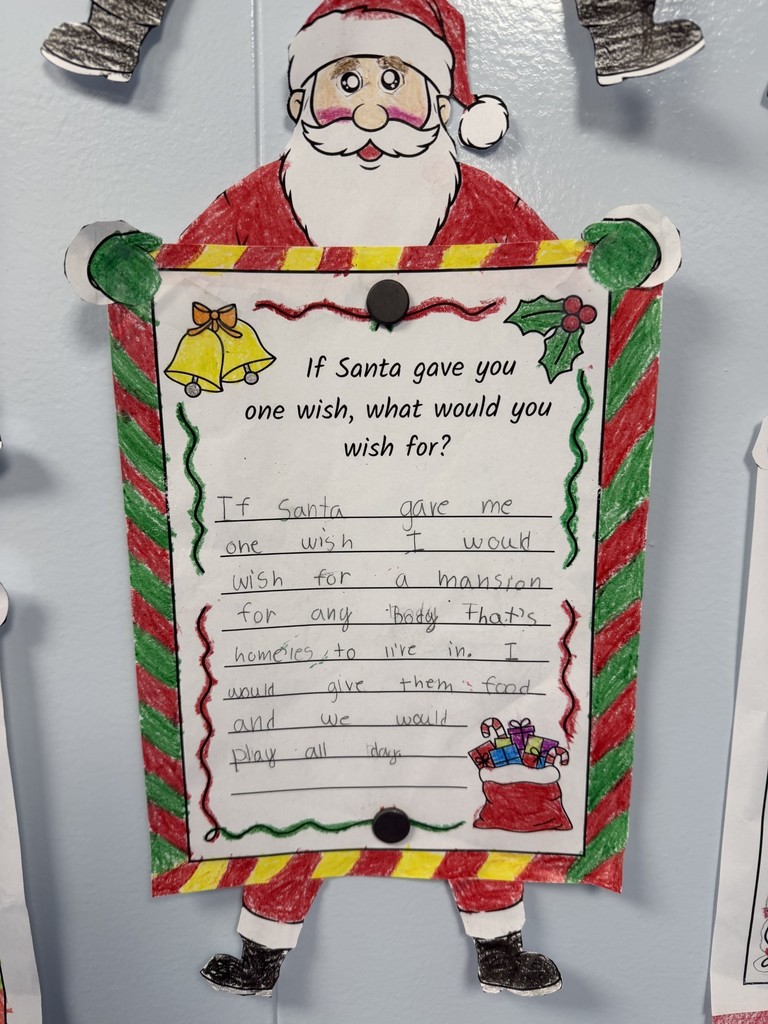 If Santa gave you
one wish, what would you
wish for?
If Santa gave me
one wish I would
wish for a mansion
for any body that's
homeles to live in. I
would give them food
and we would
play all day